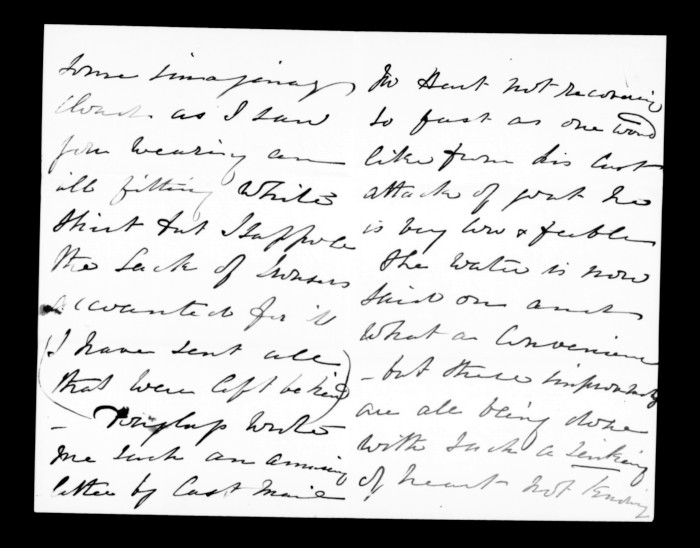 some imaginary
cloud. as I saw
you wearing an
ill fitting White
Shirt but I suppose
the lack of
accounted for it
(I have sent all
that were left behind)
- wrote
me such an amusing
letter by last mail
Hart not recovering
so fast as one would
like from his last
attack of gout he
is very low & feeble
The water is now
laid on and
what a convenience
- but these improvements
are all being done
with such a sinking
of heart not knowing